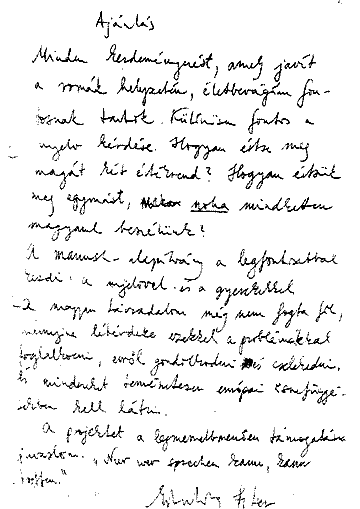 Ajánlás
Minden kezdeményezést, amely javít
a romák helyzetén, életbevágóan fon-
tosnak tartok. Különösen fontos a
nyelv kérdése. Hogyan értse meg
magát két étkrend? Hogyan értsük
meg egymást, noha mindketten
magyarul beszélünk?
A manush-alapítvány a legfontosabbal
kezdi: a nyelvvel és a gyerekekkel
A magyar társadalom még nem fogta föl,
mennyire létérdeke ezekkel a problémákkal
foglalkozni, erről gondolkodni és cselekedni,
és mindenkit természetesen európai összefüggé-
sekben kell látni.
A projektet a legmesszebbmenően támogatásra
"Nur wer sprechen kann, kann
hoffen."
Esterházy Péter